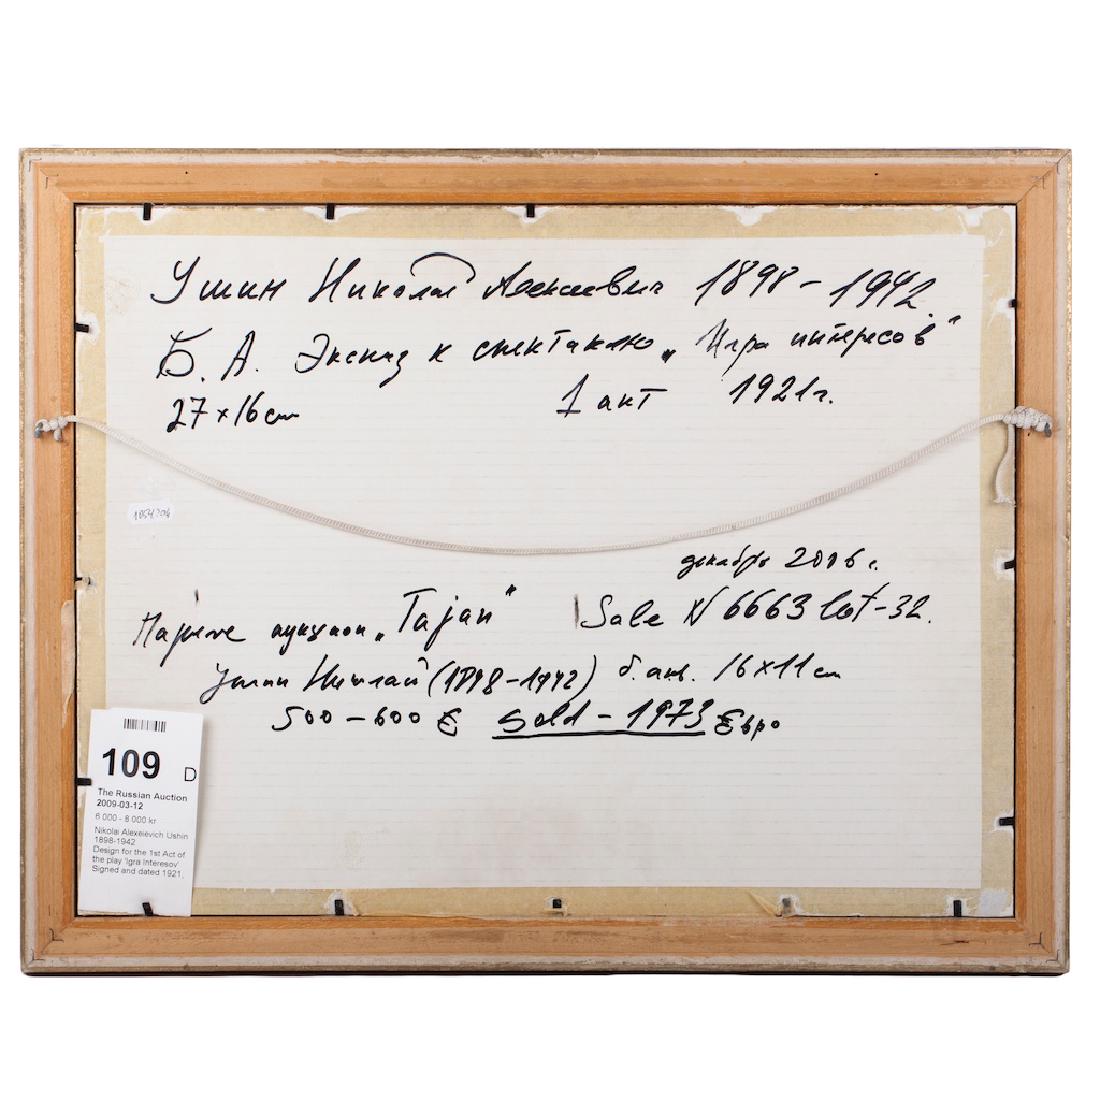 Ушин Николай Алексеевич 1898-1942.
Б. А. Эскиз к спектаклю „Игра интересов"
27×16 cm 1 акт 1921г.
декабрь 2006 г.
аукцион „Tajan" Sale N 6663 lot-32.
Ушин Николай (1898-1942) б. ак. 16×11 cm
500-600 € Sold - 1973 Евро
109 D
The Russian Auction
2009-03-12
6 000 - 8 000 kr
Nikolai Alexeievich Ushin
1898-1942
Design for the 1st Act of
the play 'Igra Interesov'
Signed and dated 1921.